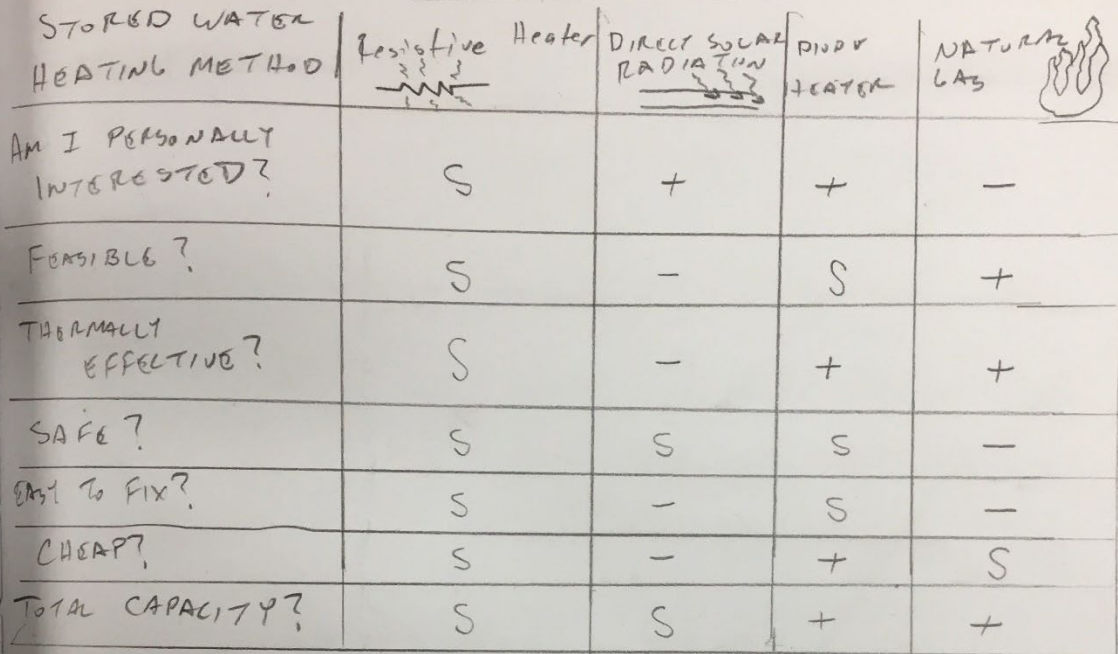 STORED WATER
HEATING METHOD
Resistive Heater
DIRECT SOLAR
RADIATION
DIODE
HEATER
NATURAL
GAS
AM I PERSONALLY
INTERESTED?
S + + –
FEASIBLE?
S – S +
THERMALLY
EFFECTIVE?
S – + +
SAFE?
S S S –
EASY TO FIX?
S – S –
CHEAP?
S – + S
TOTAL CAPACITY?
S S + +